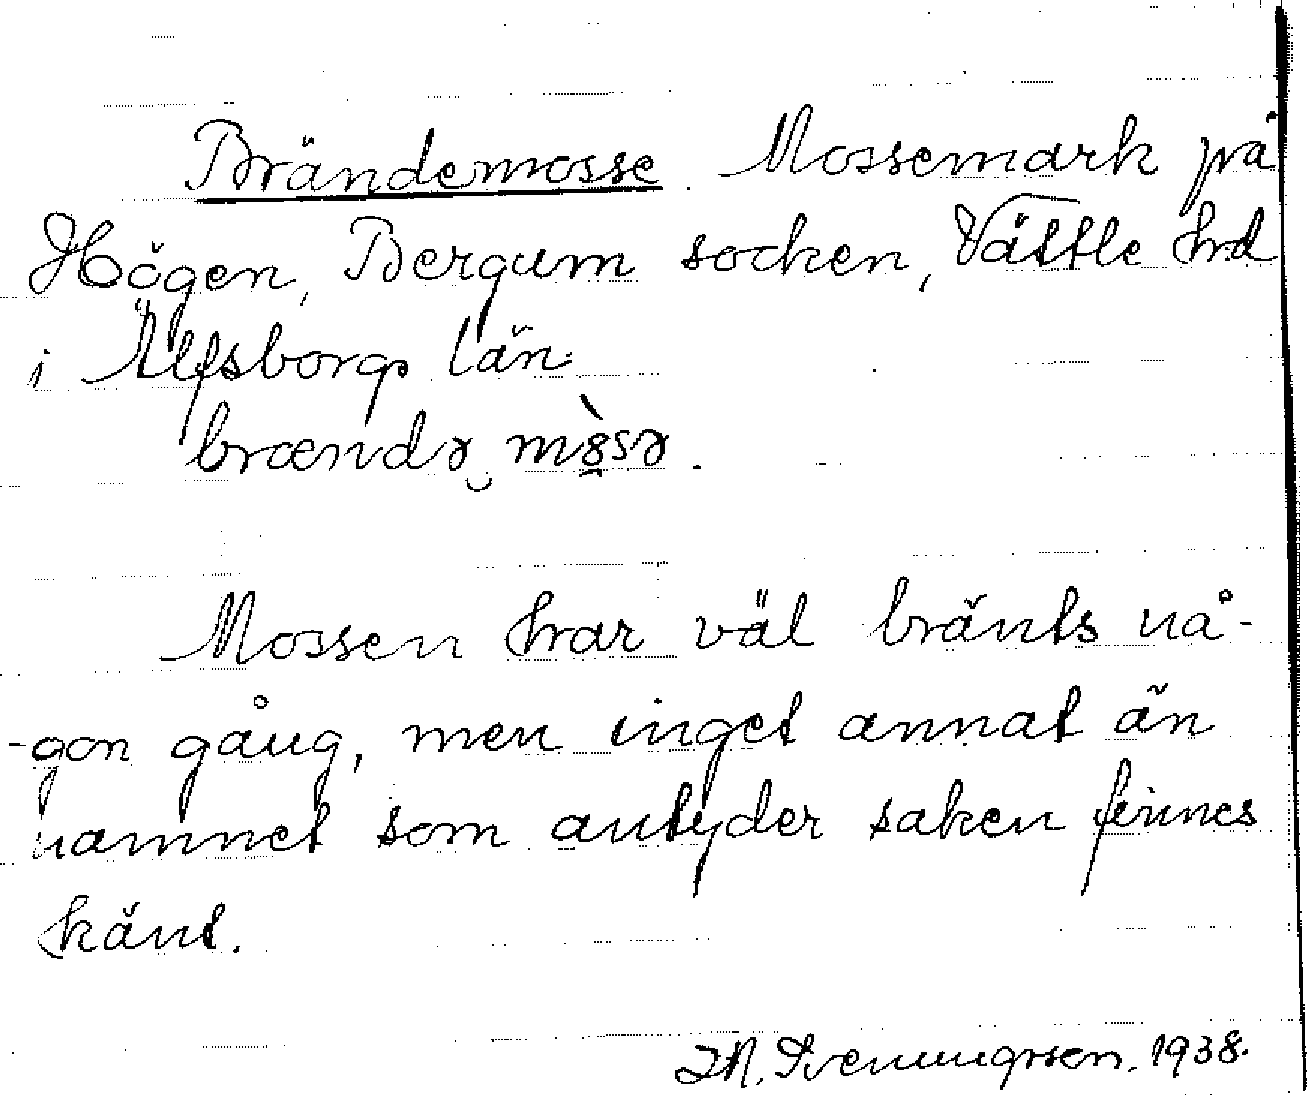 Brändemosse. Mossemark på
Högen, Bergum socken, Vättle hrd
i Älfsborgs län:
brændə mòsə.
Mossen har väl bränts nå-
-gon gång, men inget annat än
namnet som antyder saken finnes
känt.
Svenungsson. 1938.